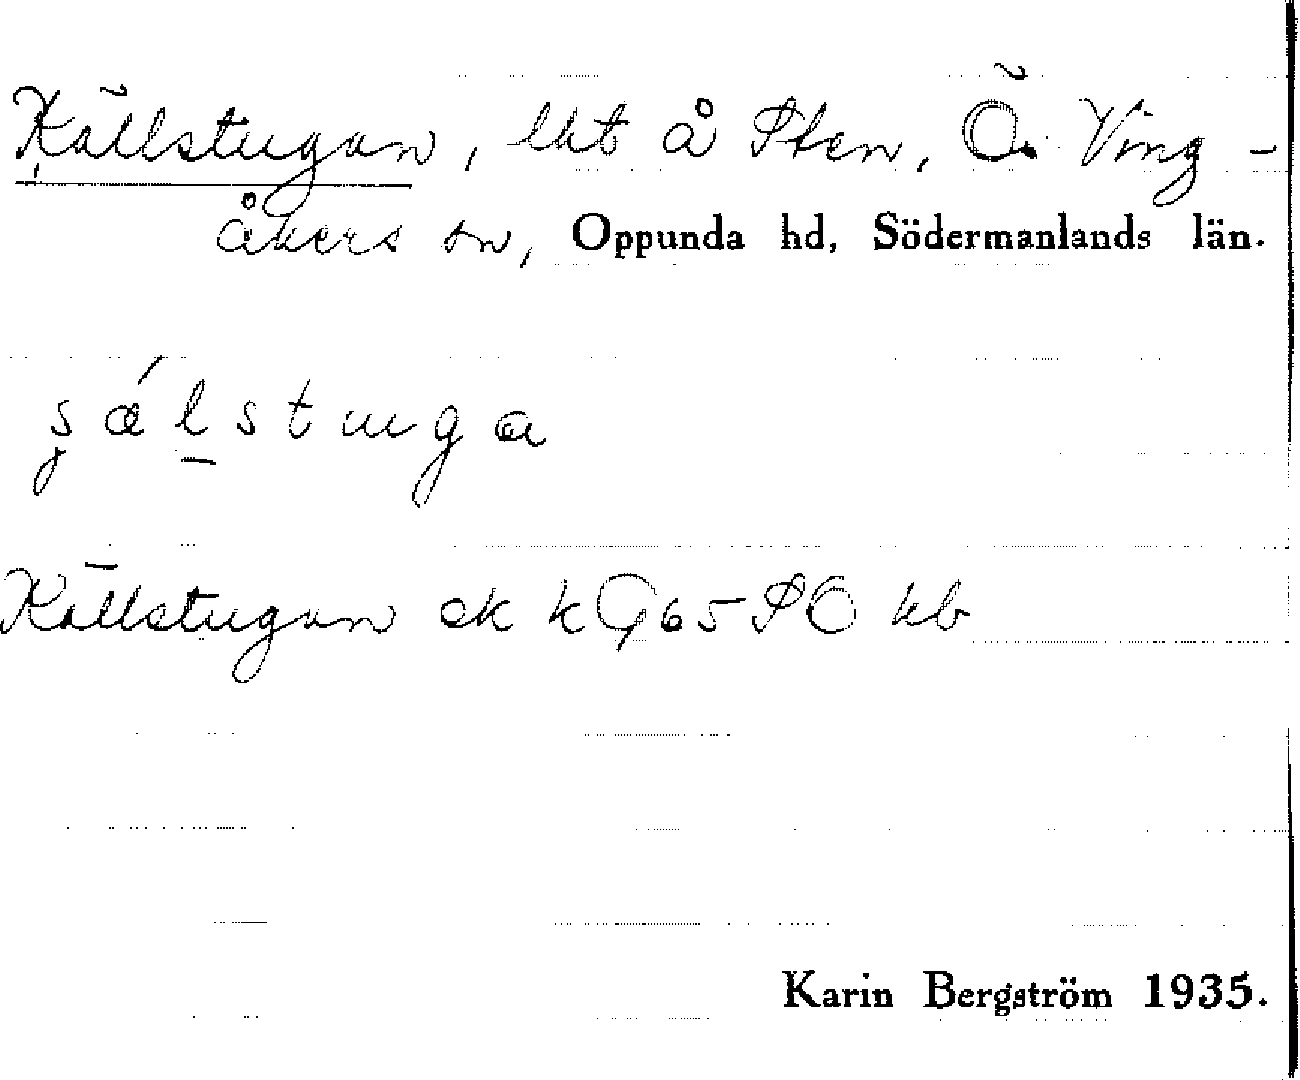 Källstugan, lht å Sten, Ö. Ving-
åkers sn, Oppunda hd, Södermanlands län.
Källstugan ek kG 65 SO kb
Karin Bergström 1935.